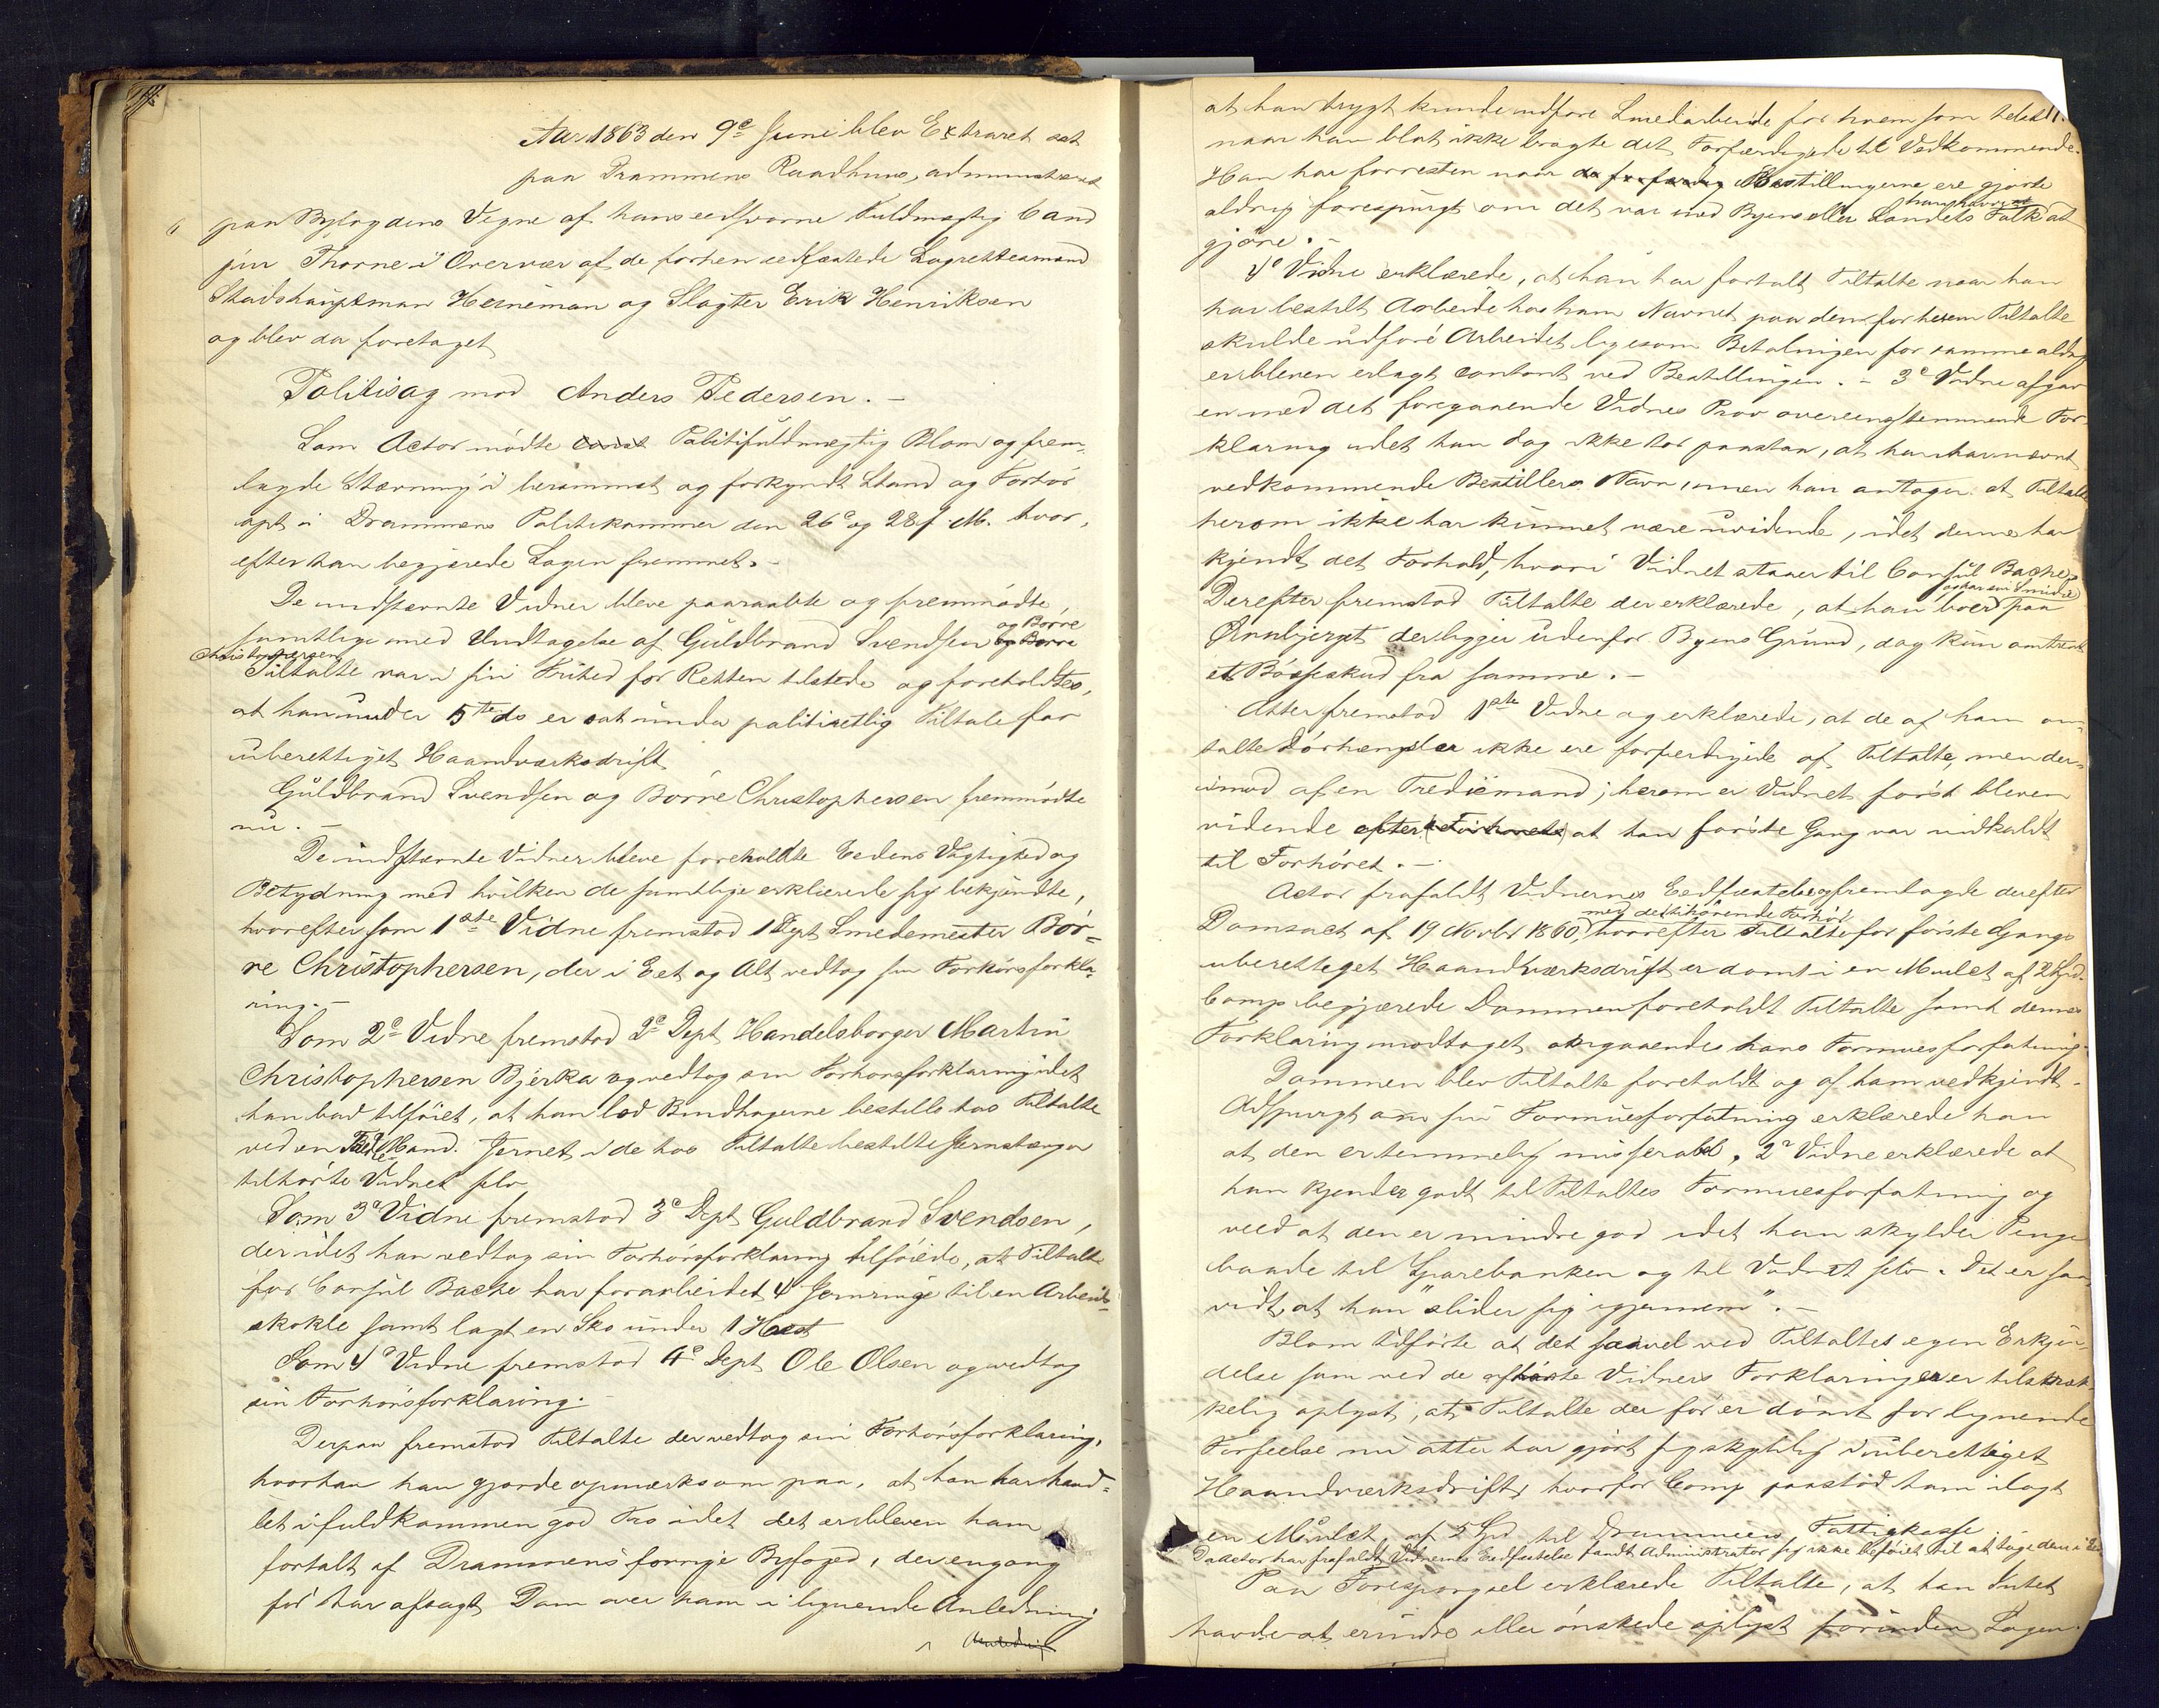 Aar 1863 den 9e Juni blev Extraret sat
paa Drammens Raadhuus, administreret
paa Byfogdens Vegne af hans eedsvorne Fuldmægtig Cand
jur Thorne i Overvær af de forhen eedfæstede Lagrettesmænd
Stadshauptman Herneman og Slagter Erik Henriksen
og blev da foretaget
Politisag mod Anders Pedersen. -
Som Actor mødte Politifuldmægtig Blom og frem-
lagde Stævning i berammet og forkyndt Stand og Forhør
opt i Drammens Politikammer den 26e og 28 f. M. hvor-
efter han begjærede Sagen fremmet. -
De indstævnte Vidner bleve paaraabte og fremmødte,
samtlige med Undtagelse af Guldbrand Svendsen og Børre
Christophersen
Tiltalte var i sin Frihed for Retten tilstede og foreholdtes,
at han under 5te ds er sat under politiretlig Tiltale for
uberettiget Haandværksdrift
Guldbrand Svendsen og Børre Christophersen fremmødte
nu. -
De indstævnte Vidner bleve foreholdte Eedens Vigtighed og
Betydning med hvilken de samtlige erklærede sig bekjendte,
hvorefter som 1ste Vidne fremstod 1 Dept Smedemester Bør-
re Christophersen, der i Eet og Alt vedtog sin Forhørsforkla-
ring. -
Som 2e Vidne fremstod 2e Dept Handelsborger Martin
Christophersen Bjerka og vedtog sin Forhørsforklaring idet
han bad tilføiet, at han lod Bindhagerne bestille hos Tiltalte
ved en Tredie Mand. Jernet i de hos Tiltalte bestilte Jernstænger
tilhørte Vidnet selv
Som 3e Vidne fremstod 3e Dept Guldbrand Svendsen,
der idet han vedtog sin Forhørsforklaring tilføiede, at Tiltalte
for Consul Bache har forarbeidet 4 Jernringe til en Arbeids-
skokle samt lagt en Sko under 1 Hest
Som 4e Vidne fremstod 4e Dept Ole Olsen og vedtog
sin Forhørsforklaring. -
Derpaa fremstod Tiltalte der vedtog sin Forhørsforklaring,
hvorhan han gjorde opmærksom paa, at han har hand-
let i fuldkommen god Tro idet det er bleven ham
fortalt af Drammens forrige Byfoged, der engang
før har afsagt Dom over ham i lignende Anledning
at han trygt kunde udføre Smedarbeide for hvem som helst
naar han blot ikke bragte det Forfærdigede til Vedkommende.
Han har forresten naar Bestillingerne ere gjorte
aldrig forespurgt om det var med Byens eller Landets Folk han havde at
gjøre. -
4e Vidne erklærede, at han har fortalt Tiltalte naar han
har bestilt Arbeide hos ham Navnet paa den for hvem Tiltalte
skulde udføre Arbeidet ligesom Betalingen for samme aldrig
er bleven erlagt contant ved Bestillingen. - 3e Vidne afgav
en med det foregaaende Vidnes Prov overeensstemmende For-
klaring idet han dog ikke tør paastaa, at han har nævnt
vedkommende Bestillers Navn, men han antager at Tiltalte
herom ikke har kunnet være uvidende, idet denne har
kjendt det Forhold, hvori Vidnet staaer til Consul Bache.
Derefter fremstod Tiltalte der erklærede, at han boer paa
Ørnbjerget der ligger udenfor Byens Grund, dog kun omtrent
et Bøsseskud fra samme. -
Atter fremstod 1ste Vidne og erklærede, at de af ham om-
talte Dørhængsler ikke ere forferdigede af Tiltalte, men der-
imod af en Trediemand; herom er Vidnet først bleven
vidende efter at han første Gang var indkaldt
til Forhøret. -
Actor frafaldt Vidnernes Eedfæstelse og fremlagde derefter
Domsact af 19 Novbr 1860, med dertilhørende Forhør, hvorefter Tiltalte for første Gangs
uberettiget Haandværksdrift er dømt i en Mulct af 2 Spd.
Comp begjærede Dommen foreholdt Tiltalte samt dennes
Forklaring modtaget angaaendes hans Formuesforfatning.
Dommen blev Tiltalte foreholdt og af ham vedkjendt. -
Adspurgt om sin Formuesforfatning erklærede han
at den er temmelig misserabel, 2e Vidne erklærede at
han kjender godt til Tiltaltes Formuesforfatning og
veed at den er mindre god idet han skylder Penge
baade til Sparebanken og til Vidnet selv. Det er saa-
vidt at han "slider sig igjennem". -
Blom udførte at det saavel ved Tiltaltes egen Erkjen-
delse som ved de afhørte Vidners Forklaringer er tilstræk-
kelig oplyst, at Tiltalte der før er dømt for lignende
Forseelse nu atter har gjort sig skyldig i uberettiget
Haandværksdrift, hvorfor Comp paastod ham ilagt
en Mulct af 5 Spd til Drammens Fattigkasse
Da Actor har frafaldt Vidnernes Eedfæstelse fandt Administrator sig ikke beføiet til at tage dem i Eed
Paa Forespørgsel erklærede Tiltalte, at han Intet
havde at erindre eller ønskede oplyst forinden Sagen